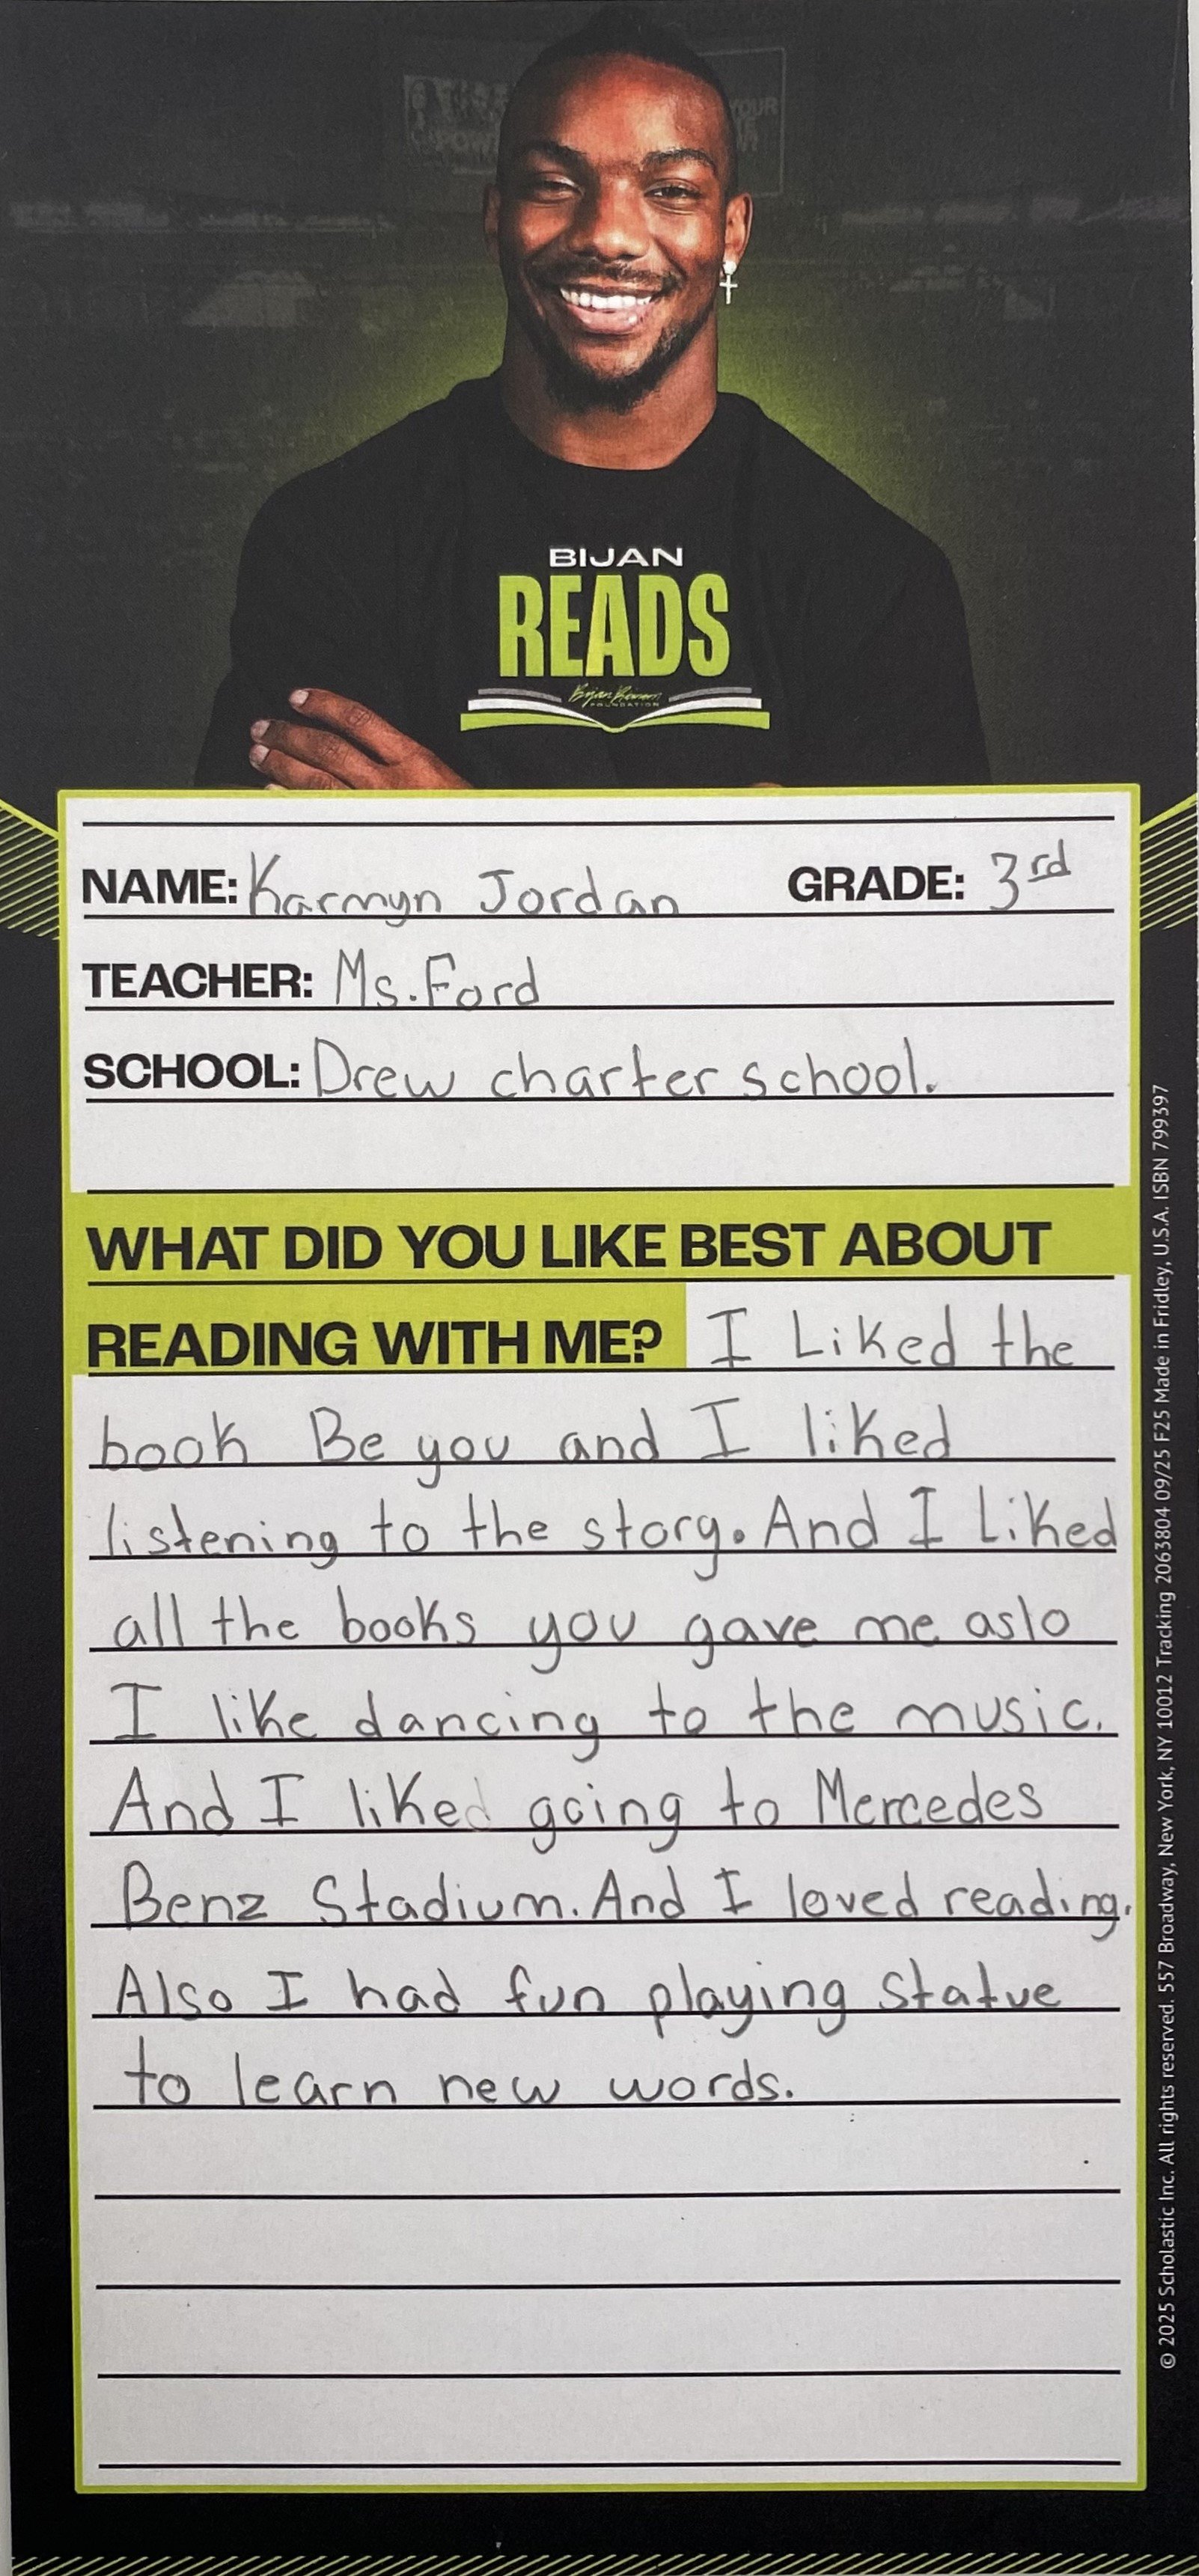 POW
YOUR
BIJAN
READS
Bijan Robinson
FOUNDATION
NAME: Karmyn Jordan GRADE: 3rd
TEACHER: Ms. Ford
SCHOOL: Drew charter school.
WHAT DID YOU LIKE BEST ABOUT
READING WITH ME? I Liked the
book Be you and I liked
listening to the story. And I Liked
all the books you gave me aslo
I like dancing to the music.
And I liked going to Mercedes
Benz Stadium. And I loved reading.
Also I had fun playing statue
to learn new words.
© 2025 Scholastic Inc. All rights reserved. 557 Broadway, New York, NY 10012 Tracking 2063804 09/25 F25 Made in Fridley, U.S.A. ISBN 799397